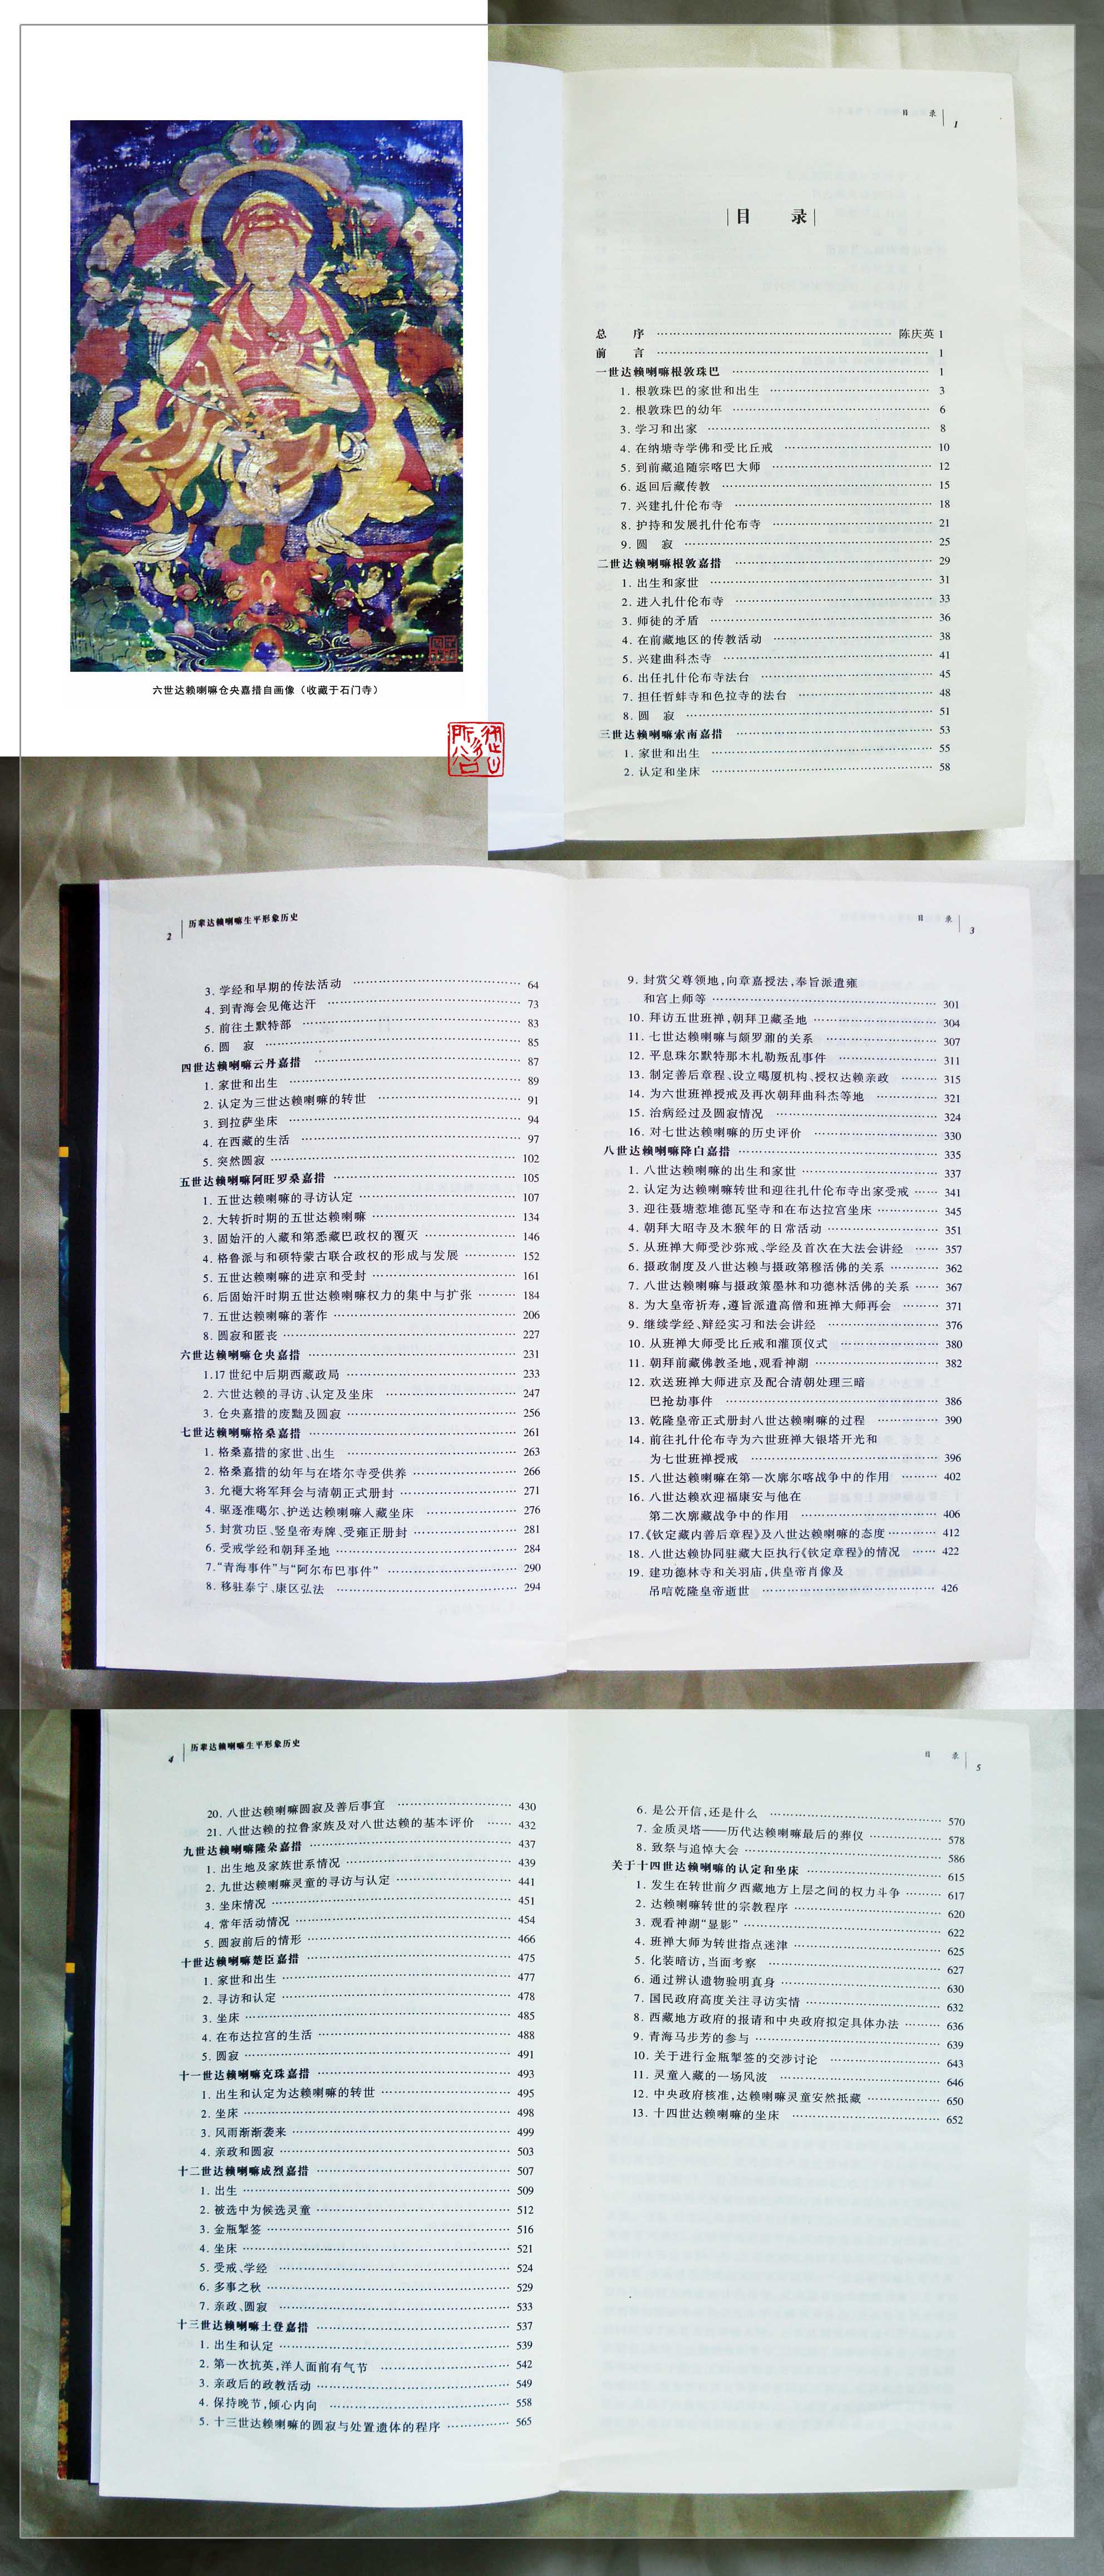 六世达赖喇嘛仓央嘉措自画像（收藏于石门寺）
目 录 1
目 录
总 序 …… 陈庆英 1
前 言 …… 1
一世达赖喇嘛根敦珠巴 …… 1
1. 根敦珠巴的家世和出生 …… 3
2. 根敦珠巴的幼年 …… 6
3. 学习和出家 …… 8
4. 在纳塘寺学佛和受比丘戒 …… 10
5. 到前藏追随宗喀巴大师 …… 12
6. 返回后藏传教 …… 15
7. 兴建扎什伦布寺 …… 18
8. 护持和发展扎什伦布寺 …… 21
9. 圆 寂 …… 25
二世达赖喇嘛根敦嘉措 …… 29
1. 出生和家世 …… 31
2. 进入扎什伦布寺 …… 33
3. 师徒的矛盾 …… 36
4. 在前藏地区的传教活动 …… 38
5. 兴建曲科杰寺 …… 41
6. 出任扎什伦布寺法台 …… 45
7. 担任哲蚌寺和色拉寺的法台 …… 48
8. 圆 寂 …… 51
三世达赖喇嘛索南嘉措 …… 53
1. 家世和出生 …… 55
2. 认定和坐床 …… 58
2 历辈达赖喇嘛生平形象历史
3. 学经和早期的传法活动 …… 64
4. 到青海会见俺达汗 …… 73
5. 前往土默特部 …… 83
6. 圆 寂 …… 85
四世达赖喇嘛云丹嘉措 …… 87
1. 家世和出生 …… 89
2. 认定为三世达赖喇嘛的转世 …… 91
3. 到拉萨坐床 …… 94
4. 在西藏的生活 …… 97
5. 突然圆寂 …… 102
五世达赖喇嘛阿旺罗桑嘉措 …… 105
1. 五世达赖喇嘛的寻访认定 …… 107
2. 大转折时期的五世达赖喇嘛 …… 134
3. 固始汗的入藏和第悉藏巴政权的覆灭 …… 146
4. 格鲁派与和硕特蒙古联合政权的形成与发展 …… 152
5. 五世达赖喇嘛的进京和受封 …… 161
6. 后固始汗时期五世达赖喇嘛权力的集中与扩张 …… 184
7. 五世达赖喇嘛的著作 …… 206
8. 圆寂和匿丧 …… 227
六世达赖喇嘛仓央嘉措 …… 231
1.17 世纪中后期西藏政局 …… 233
2. 六世达赖的寻访、认定及坐床 …… 247
3. 仓央嘉措的废黜及圆寂 …… 256
七世达赖喇嘛格桑嘉措 …… 261
1. 格桑嘉措的家世、出生 …… 263
2. 格桑嘉措的幼年与在塔尔寺受供养 …… 266
3. 允禵大将军拜会与清朝正式册封 …… 271
4. 驱逐准噶尔、护送达赖喇嘛入藏坐床 …… 276
5. 封赏功臣、竖皇帝寿牌、受雍正册封 …… 281
6. 受戒学经和朝拜圣地 …… 284
7.“青海事件”与“阿尔布巴事件” …… 290
8. 移驻泰宁、康区弘法 …… 294
目 录 3
9. 封赏父尊领地，向章嘉授法，奉旨派遣雍
和宫上师等 …… 301
10. 拜访五世班禅，朝拜卫藏圣地 …… 304
11. 七世达赖喇嘛与颇罗鼐的关系 …… 307
12. 平息珠尔默特那木札勒叛乱事件 …… 311
13. 制定善后章程、设立噶厦机构、授权达赖亲政 …… 315
14. 为六世班禅授戒及再次朝拜曲科杰等地 …… 321
15. 治病经过及圆寂情况 …… 324
16. 对七世达赖喇嘛的历史评价 …… 330
八世达赖喇嘛降白嘉措 …… 335
1. 八世达赖喇嘛的出生和家世 …… 337
2. 认定为达赖喇嘛转世和迎往扎什伦布寺出家受戒 …… 341
3. 迎往聂塘惹堆德瓦坚寺和在布达拉宫坐床 …… 345
4. 朝拜大昭寺及木猴年的日常活动 …… 351
5. 从班禅大师受沙弥戒、学经及首次在大法会讲经 …… 357
6. 摄政制度及八世达赖与摄政第穆活佛的关系 …… 362
7. 八世达赖喇嘛与摄政策墨林和功德林活佛的关系 …… 367
8. 为大皇帝祈寿，遵旨派遣高僧和班禅大师再会 …… 371
9. 继续学经、辩经实习和法会讲经 …… 376
10. 从班禅大师受比丘戒和灌顶仪式 …… 380
11. 朝拜前藏佛教圣地，观看神湖 …… 382
12. 欢送班禅大师进京及配合清朝处理三暗
巴抢劫事件 …… 386
13. 乾隆皇帝正式册封八世达赖喇嘛的过程 …… 390
14. 前往扎什伦布寺为六世班禅大银塔开光和
为七世班禅授戒 …… 396
15. 八世达赖喇嘛在第一次廓尔喀战争中的作用 …… 402
16. 八世达赖欢迎福康安与他在
第二次廓藏战争中的作用 …… 406
17.《钦定藏内善后章程》及八世达赖喇嘛的态度 …… 412
18. 八世达赖协同驻藏大臣执行《钦定章程》的情况 …… 422
19. 建功德林寺和关羽庙，供皇帝肖像及
吊唁乾隆皇帝逝世 …… 426
4 历辈达赖喇嘛生平形象历史
20. 八世达赖喇嘛圆寂及善后事宜 …… 430
21. 八世达赖的拉鲁家族及对八世达赖的基本评价 …… 432
九世达赖喇嘛隆朵嘉措 …… 437
1. 出生地及家族世系情况 …… 439
2. 九世达赖喇嘛灵童的寻访与认定 …… 441
3. 坐床情况 …… 451
4. 常年活动情况 …… 454
5. 圆寂前后的情形 …… 466
十世达赖喇嘛楚臣嘉措 …… 475
1. 家世和出生 …… 477
2. 寻访和认定 …… 478
3. 坐床 …… 485
4. 在布达拉宫的生活 …… 488
5. 圆寂 …… 491
十一世达赖喇嘛克珠嘉措 …… 493
1. 出生和认定为达赖喇嘛的转世 …… 495
2. 坐床 …… 498
3. 风雨渐渐袭来 …… 499
4. 亲政和圆寂 …… 503
十二世达赖喇嘛成烈嘉措 …… 507
1. 出生 …… 509
2. 被选中为候选灵童 …… 512
3. 金瓶掣签 …… 516
4. 坐床 …… 521
5. 受戒、学经 …… 524
6. 多事之秋 …… 529
7. 亲政、圆寂 …… 533
十三世达赖喇嘛土登嘉措 …… 537
1. 出生和认定 …… 539
2. 第一次抗英，洋人面前有气节 …… 542
3. 亲政后的政教活动 …… 549
4. 保持晚节，倾心内向 …… 558
5. 十三世达赖喇嘛的圆寂与处置遗体的程序 …… 565
目 录 5
6. 是公开信，还是什么 …… 570
7. 金质灵塔——历代达赖喇嘛最后的葬仪 …… 578
8. 致祭与追悼大会 …… 586
关于十四世达赖喇嘛的认定和坐床 …… 615
1. 发生在转世前夕西藏地方上层之间的权力斗争 …… 617
2. 达赖喇嘛转世的宗教程序 …… 620
3. 观看神湖“显影” …… 622
4. 班禅大师为转世指点迷津 …… 625
5. 化装暗访，当面考察 …… 627
6. 通过辨认遗物验明真身 …… 630
7. 国民政府高度关注寻访实情 …… 632
8. 西藏地方政府的报请和中央政府拟定具体办法 …… 636
9. 青海马步芳的参与 …… 639
10. 关于进行金瓶掣签的交涉讨论 …… 643
11. 灵童入藏的一场风波 …… 646
12. 中央政府核准，达赖喇嘛灵童安然抵藏 …… 650
13. 十四世达赖喇嘛的坐床 …… 652